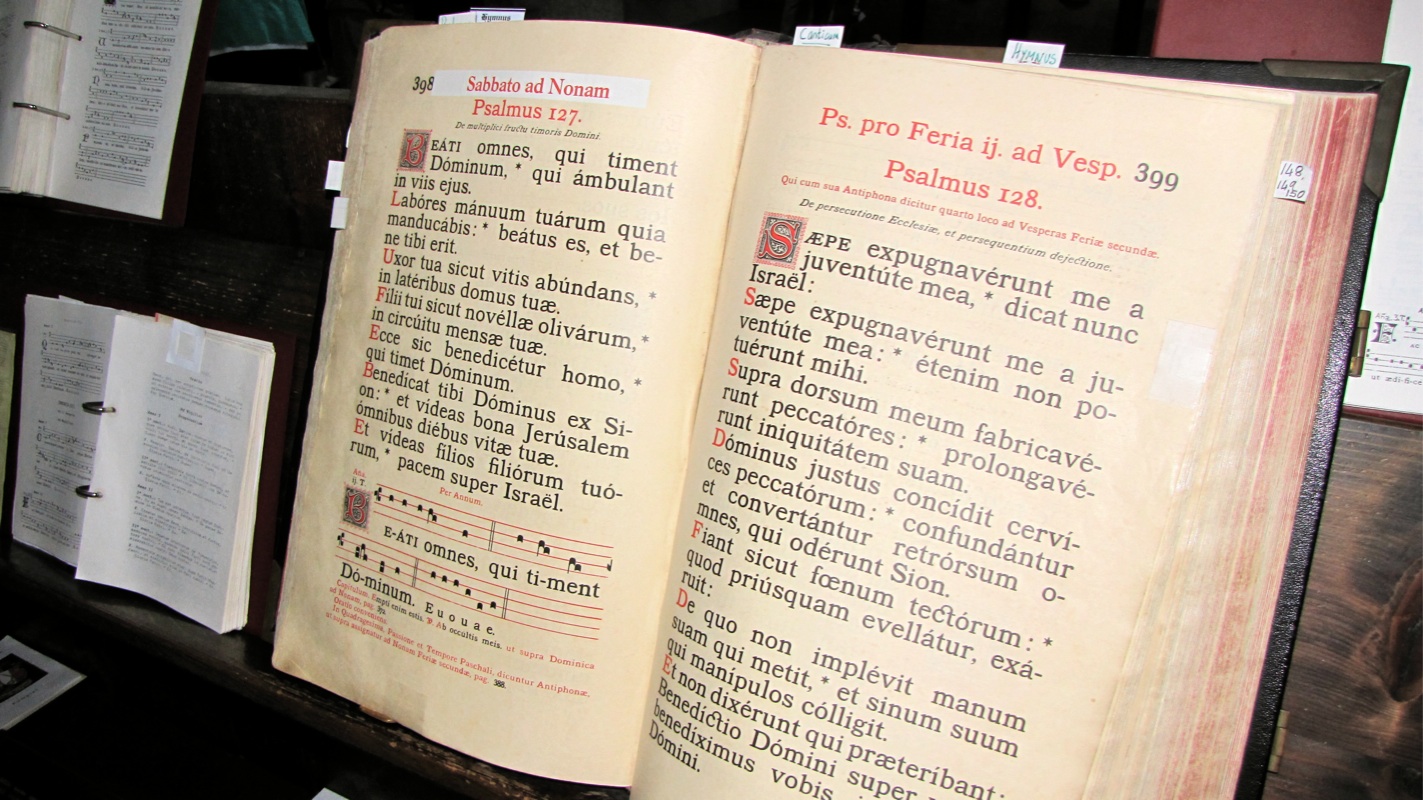 Hymnus
Canticum
HYMNUS
398 Sabbato ad Nonam
Psalmus 127.
De multiplici fructu timoris Domini.
BEÁTI omnes, qui timent
Dóminum, * qui ámbulant
in viis ejus.
Labóres mánuum tuárum quia
manducábis: * beátus es, et be-
ne tibi erit.
Uxor tua sicut vitis abúndans, *
in latéribus domus tuæ.
Fílii tui sicut novéllæ olivárum, *
in circúitu mensæ tuæ.
Ecce sic benedicétur homo, *
qui timet Dóminum.
Benedícat tibi Dóminus ex Si-
on: * et vídeas bona Jerúsalem
ómnibus diébus vitæ tuæ.
Et vídeas fílios filiórum tuó-
rum, * pacem super Israël.
Ana.
ij. T.
Per Annum.
BE-ÁTI omnes, qui ti-ment
Dó-minum. E u o u a e.
Capitulum. Empti enim estis. ℣ Ab occúltis meis. ut supra Dominica
ad Nonam, pag.
Oratio conveniens.
In Quadragesima, Passione et Tempore Paschali, dicuntur Antiphonæ,
ut supra assignatur ad Nonam Feriæ secundæ, pag. 388.
Ps. pro Feria ij. ad Vesp. 399
Psalmus 128.
Qui cum sua Antiphona dicitur quarto loco ad Vesperas Feriæ secundæ.
De persecutione Ecclesiæ, et persequentium dejectione.
SÆPE expugnavérunt me a
juventúte mea, * dicat nunc
Israël:
Sæpe expugnavérunt me a ju-
ventúte mea: * étenim non po-
tuérunt mihi.
Supra dorsum meum fabricavé-
runt peccatóres: * prolongavé-
runt iniquitátem suam.
Dóminus justus concídit cerví-
ces peccatórum: * confundántur
et convertántur retrórsum o-
mnes, qui odérunt Sion.
Fiant sicut fœnum tectórum: *
quod priúsquam evellátur, exá-
ruit:
De quo non implévit manum
suam qui metit, * et sinum suum
qui manípulos cólligit.
Et non dixérunt qui præteríbant:
Benedíctio Dómini super
benedíximus vobis
Dómini.
148,
149,
150
ur ædi-fi-c